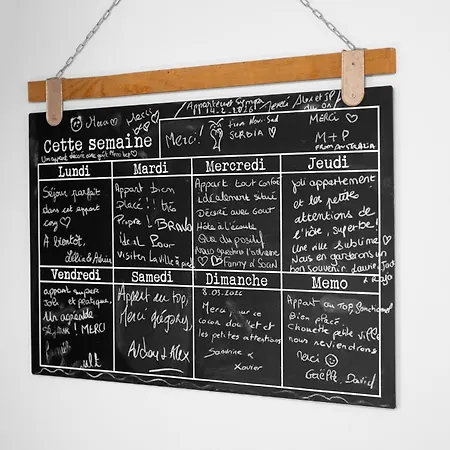 Appartement Sympa Merci Alex et JP
14-2-2026
Merci
Merci!
from Novi-Sad
SERBIA ♡
MERCI ♡
M+P
FROM AUSTRALIA
Cette semaine
Un appart décoré avec goût Merci
Lundi
Séjour parfait
dans cet appart
cosy ♡
A bientôt,
Mardi
Appart bien
placé!! très
Propre! BRAVO
Idéal Pour
Visiter La ville à pied
Mercredi
Appart tout confort
idéalement situé
Décoré avec Goût
Hôte à l'écoute
Que du positif
Nous gardons l'adresse
♡ Fanny & Sean
Jeudi
joli appartement
et les petites
attentions de
l'hôte, superbe!
Une ville sublime
Nous en garderons un
bon souvenir.
Vendredi
appart super
Joli et pratique,
Un agréable
Séjour! MERCI
Samedi
Appart au top,
Merci Grégory,
& Alex
Dimanche
8.03.2026
Merci pour ce
cocon douillet et
les petites attentions
Sandrine &
Xavier
Memo
Appart au TOP
Bien placé
Chouette petite ville
nous reviendrons
Merci ☺
Gaëlle, David